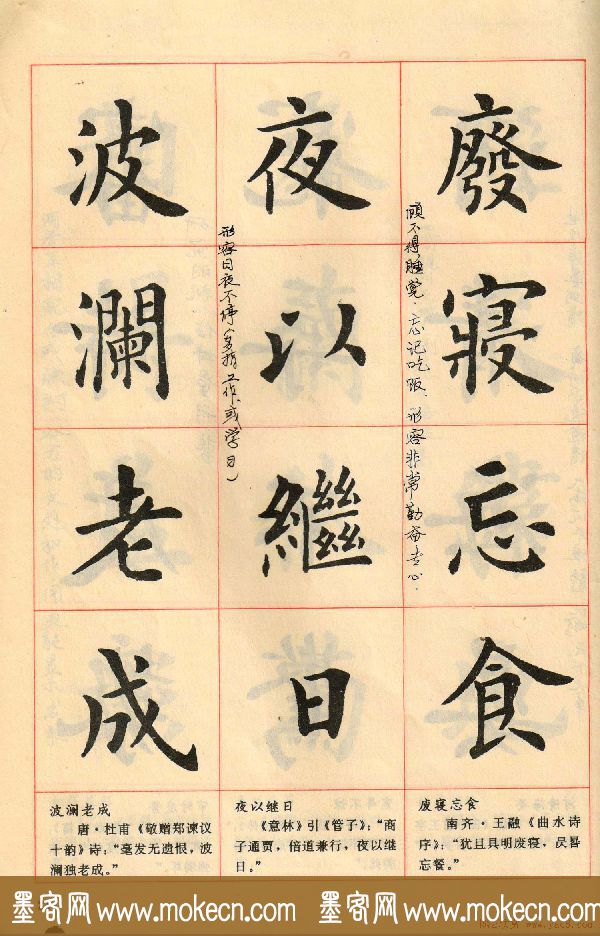 廢寢忘食
顾不得睡觉，忘记吃饭。形容非常勤奋专心。
夜以繼日
形容日夜不停（多指工作或学习）
波瀾老成
波澜老成
唐·杜甫《敬赠郑谏议
十韵》诗：“毫发无遗恨，波
澜独老成。”
夜以继日
《意林》引《管子》：“商
子通贾，倍道兼行，夜以继
日。”
废寝忘食
南齐·王融《曲水诗
序》：“犹且具明废寝，昃晷
忘餐。”
墨客网 www.mokecn.com 墨客网 www.mokecn.com